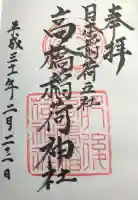 奉拝
日本稲荷五社
高橋稲荷神社
平成三十一年二月二日